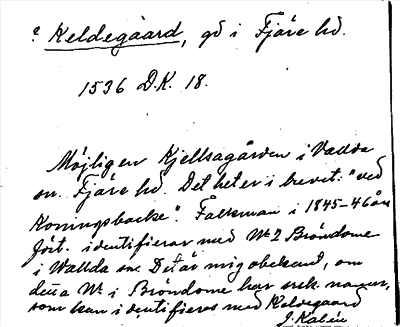 ? Keldegaard, gd i Fjäre hd.
1536 D.K. 18.
Möjligen Kjellsagården i Vallda
sn. Fjäre hd. Det heter i brevet: "ved
Konungsbacke". Falkman i 1845-46 års
jört. identifierar med № 2 Bröndome
i Wallda sn. Det är mig obekant, om
detta № i Bröndome har srsk. namn,
som kan identifieras med Keldegaard
J. Kalén